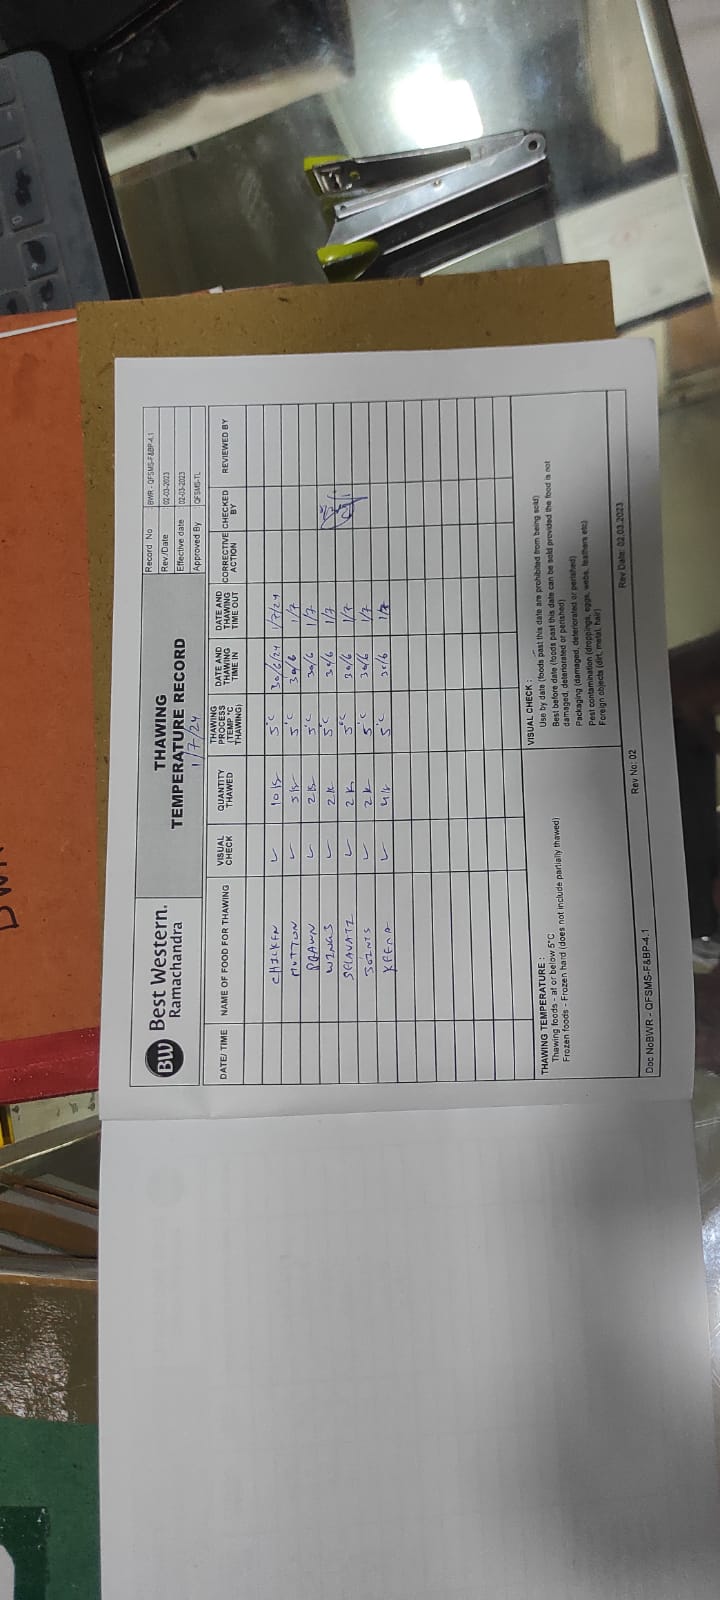 BW Best Western.
Ramachandra
THAWING
TEMPERATURE RECORD
1/7/24
Record No BWR - QFSMS-F&BP-4.1
Rev/Date 02-03-2023
Effective date 02-03-2023
Approved By QFSMS-TL
DATE/ TIME NAME OF FOOD FOR THAWING VISUAL CHECK QUANTITY THAWED THAWING PROCESS (TEMP °C THAWING) DATE AND THAWING TIME IN DATE AND THAWING TIME OUT CORRECTIVE ACTION CHECKED BY REVIEWED BY
CHICKEN ✓ 10 K 5°C 30/6/24 1/7/24
MUTTON ✓ 5 K 5°C 30/6 1/7
PRAWN ✓ 2 K 5°C 30/6 1/7
WINGS ✓ 2 K 5°C 30/6 1/7
SELAVATI ✓ 2 K 5°C 30/6 1/7
JOINTS ✓ 2 K 5°C 30/6 1/7
KEEMA ✓ 4 K 5°C 30/6 1/7
THAWING TEMPERATURE :
Thawing foods - at or below 5°C
Frozen foods - Frozen hard (does not include partially thawed)
VISUAL CHECK :
Use by date (foods past this date are prohibited from being sold)
Best before date (foods past this date can be sold provided the food is not
damaged, deteriorated or perished)
Packaging (damaged, deteriorated or perished)
Pest contamination (droppings, eggs, webs, feathers etc)
Foreign objects (dirt, metal, hair)
Doc NoBWR - QFSMS-F&BP-4.1 Rev No: 02 Rev Date: 02.03.2023